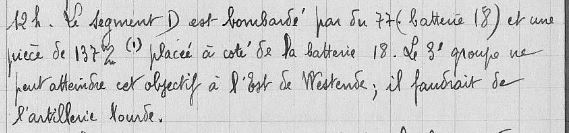 12 h. Le segment D est bombardé par du 77 (batterie 18) et une
pièce de 137 m/m (1) placée à coté de la batterie 18. Le 3e groupe ne
peut atteindre cet objectif à l'Est de Westende ; il faudrait de
l'artillerie lourde.